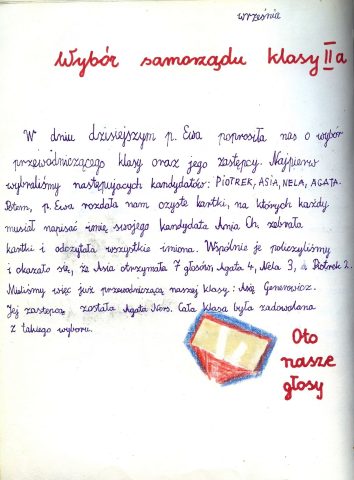 września
Wybór samorządu klasy II a
W dniu dzisiejszym p. Ewa poprosiła nas o wybór
przewodniczącego klasy oraz jego zastępcy. Najpierw
wybraliśmy następujących kandydatów: PIOTREK, ASIA, NELA, AGATA.
Potem, p. Ewa rozdała nam czyste kartki, na których każdy
musiał napisać imię swojego kandydata Ania Ch. zebrała
kartki i odczytała wszystkie imiona. Wspólnie je policzyliśmy
i okazało się, że Asia otrzymała 7 głosów Agata 4, Nela 3, a Piotrek 2.
Mieliśmy więc już przewodniczącą naszej klasy: Asię
Jej zastępcą została Agata Cała klasa była zadowolona
z takiego wyboru.
Oto
nasze
głosy